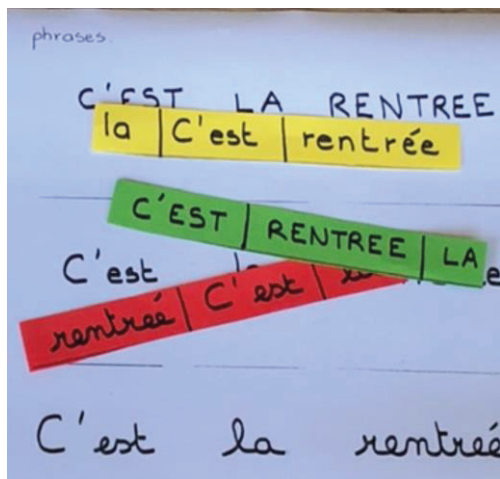 phrases.
C'EST LA RENTREE
la C'est rentrée
C'EST RENTREE LA
C'est
rentrée C'est
C'est la rentrée